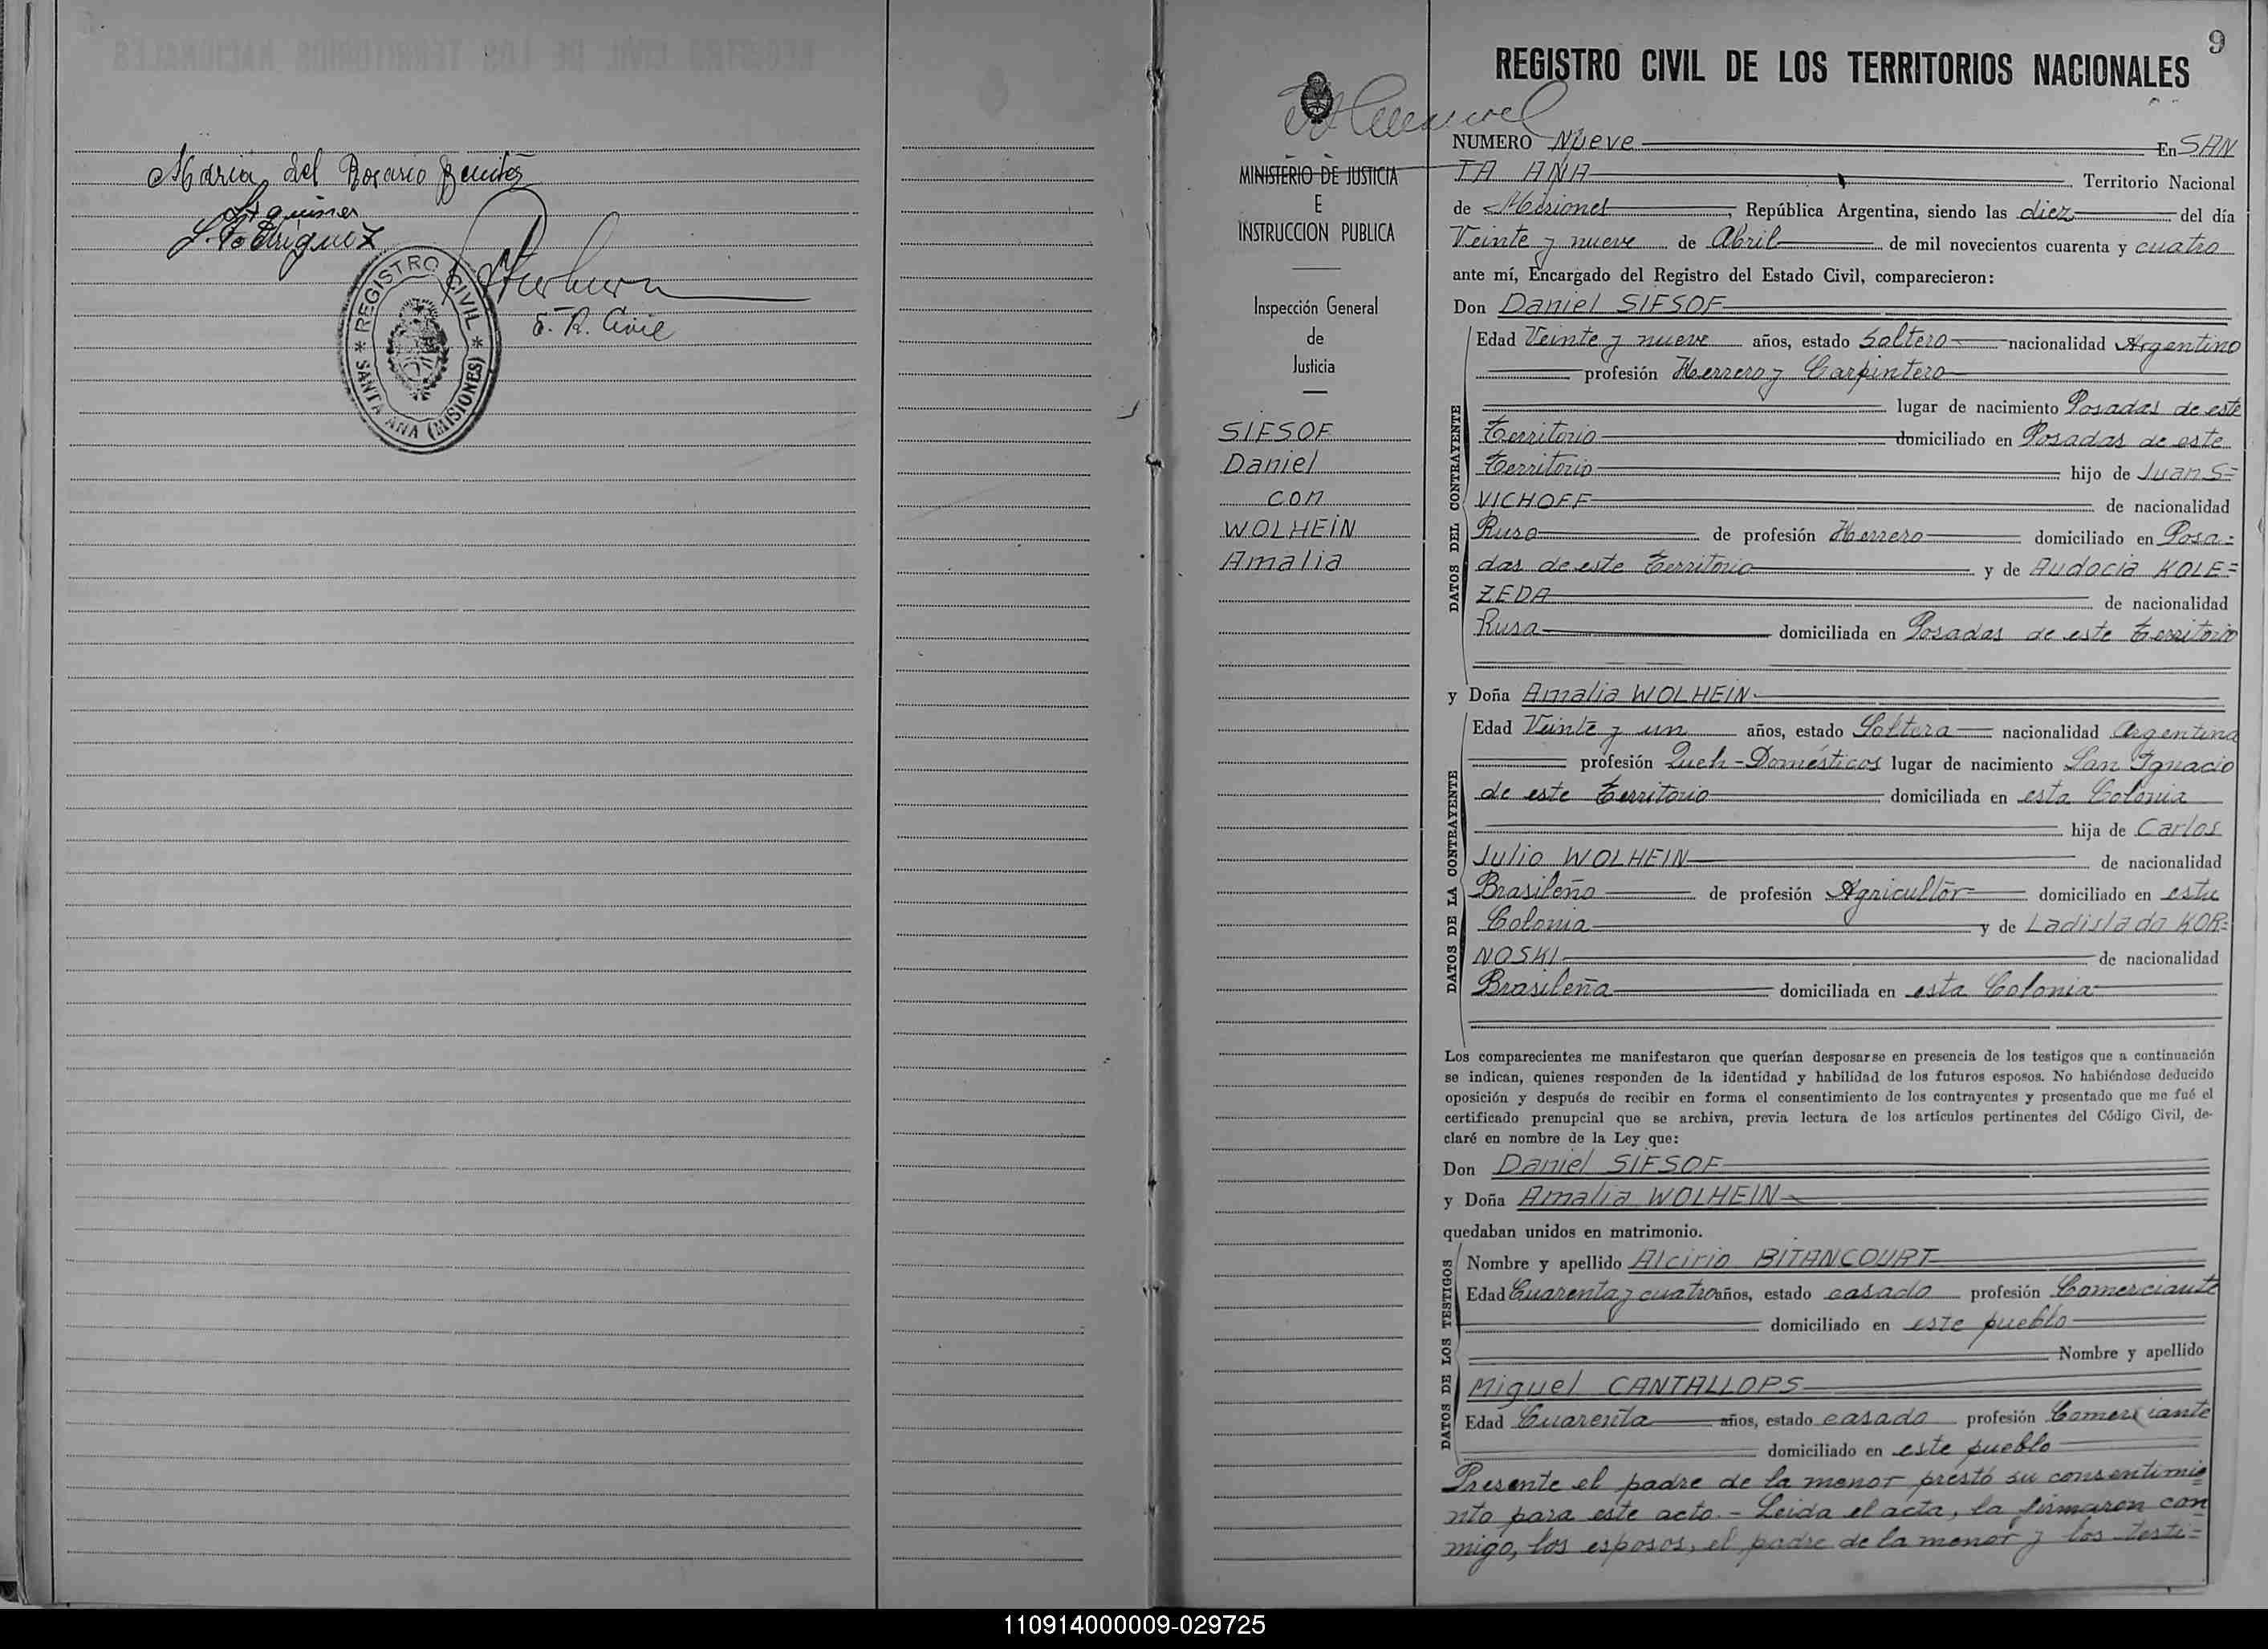 Maria del Rosario Benitez
REGISTRO CIVIL
SANTA ANA (MISIONES)
E. R. Civil
9
REGISTRO CIVIL DE LOS TERRITORIOS NACIONALES
MINISTERIO DE JUSTICIA
E
INSTRUCCION PUBLICA
Inspección General
de
Justicia
SIFSOF
Daniel
con
WOLHEIN
Amalia
NUMERO Nueve En SAN
TA ANA Territorio Nacional
de Misiones, República Argentina, siendo las diez del día
Veinte y nueve de Abril de mil novecientos cuarenta y cuatro
ante mí, Encargado del Registro del Estado Civil, comparecieron:
Don Daniel SIFSOF
DATOS DEL CONTRAYENTE
Edad Veinte y nueve años, estado Soltero nacionalidad Argentino
profesión Herrero y Carpintero
lugar de nacimiento Posadas de este
Territorio domiciliado en Posadas de este
Territorio hijo de Juan S=
VICHOFF de nacionalidad
Ruso de profesión Herrero domiciliado en Posa=
das de este Territorio y de Audocia KOLE=
ZEDA de nacionalidad
Rusa domiciliada en Posadas de este Territorio
y Doña Amalia WOLHEIN
DATOS DE LA CONTRAYENTE
Edad Veinte y un años, estado Soltera nacionalidad Argentina
profesión Queh-Domésticos lugar de nacimiento San Ignacio
de este Territorio domiciliada en esta Colonia
hija de Carlos
Julio WOLHEIN de nacionalidad
Brasileño de profesión Agricultor domiciliado en esta
Colonia y de Ladislada KOR=
NOSKI de nacionalidad
Brasileña domiciliada en esta Colonia
Los comparecientes me manifestaron que querían desposarse en presencia de los testigos que a continuación
se indican, quienes responden de la identidad y habilidad de los futuros esposos. No habiéndose deducido
oposición y después de recibir en forma el consentimiento de los contrayentes y presentado que me fué el
certificado prenupcial que se archiva, previa lectura de los artículos pertinentes del Código Civil, de-
claré en nombre de la Ley que:
Don Daniel SIFSOF
y Doña Amalia WOLHEIN
quedaban unidos en matrimonio.
DATOS DE LOS TESTIGOS
Nombre y apellido Alcirio BITANCOURT
Edad Cuarenta y cuatro años, estado casado profesión Comerciante
domiciliado en este pueblo
Nombre y apellido
Miguel CANTALLOPS
Edad Cuarenta años, estado casado profesión Comerciante
domiciliado en este pueblo
Presente el padre de la menor prestó su consentimie=
nto para este acto.- Leida el acta, la firmaron con
migo, los esposos, el padre de la menor y los testi=
110914000009-029725